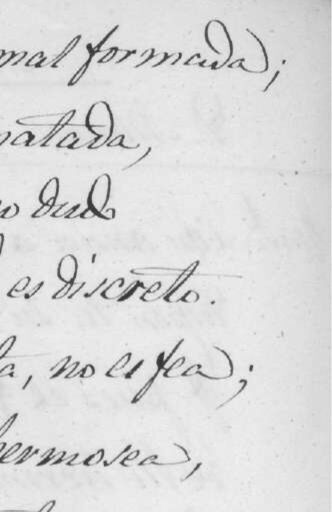 mal formada;
ratada,
o dudo
es discreto.
ta, no es fea;
hermosea,